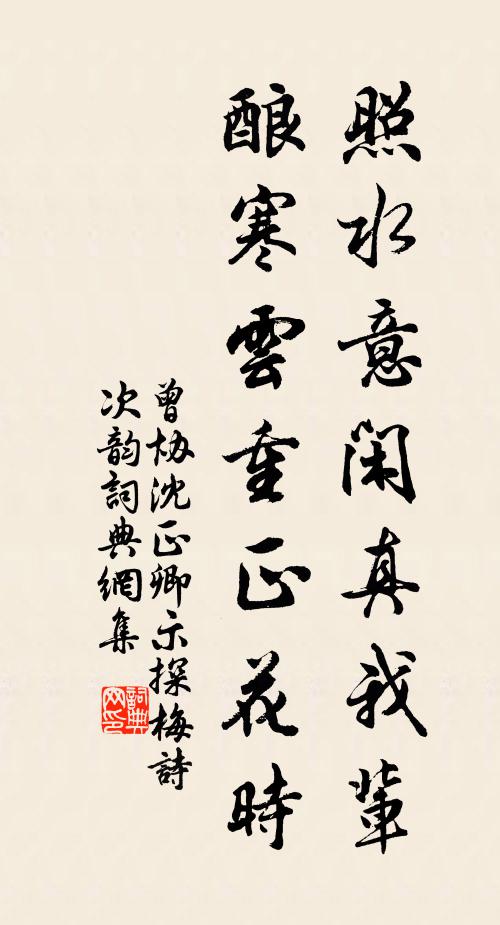 照水意閑真我輩
酿寒雲重正花時
曾协沈正卿示探梅詩
次韵詞典網集
詞典网印